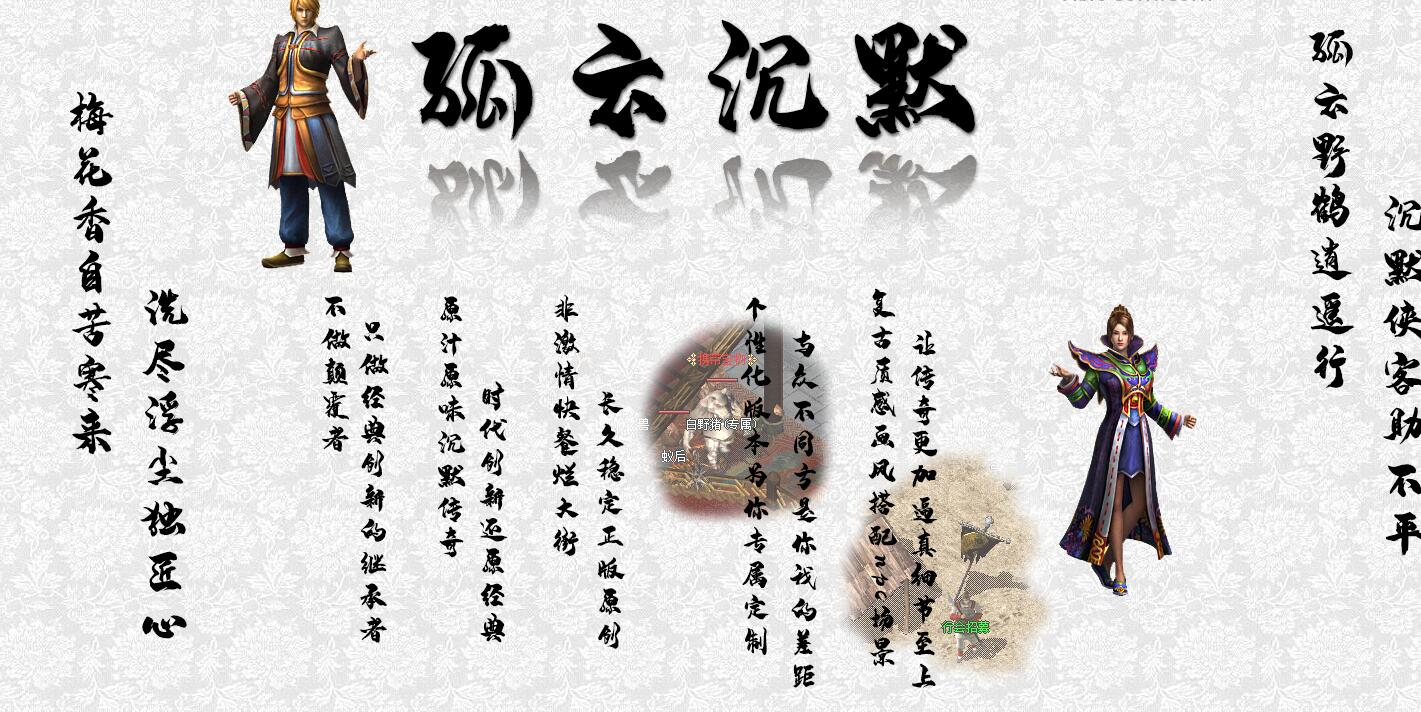 孤云沉默
梅花香自苦寒来
洗尽浮尘独匠心
不做颠覆者
只做经典创新的继承者
原汁原味沉默传奇
时代创新还原经典
非激情快餐烂大街
长久稳定正版原创
个性化版本为你专属定制
与众不同方是你我的差距
复古质感画风搭配
场景
让传奇更加逼真细节至上
孤云野鹤逍遥行
沉默侠客助不平
携带宝物
白野猪(专属)
兽
蚁后
行会招募